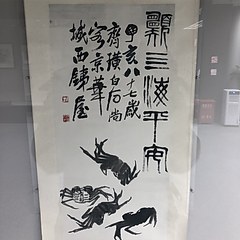 願三海平安
甲亥八十七歲
齊璜白石尚
客京華
城西鐵屋